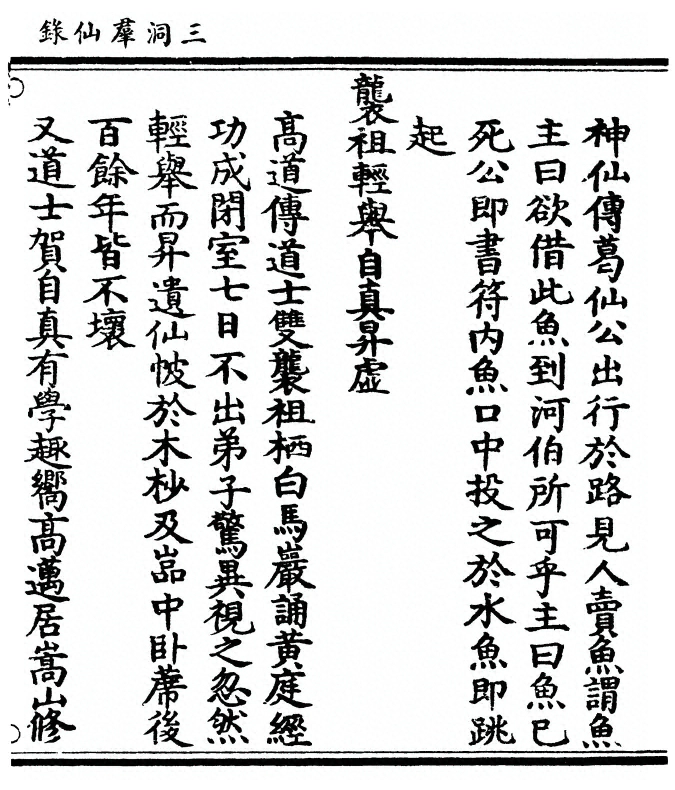 三洞羣仙錄
神仙傳葛仙公出行於路見人賣魚謂魚
主曰欲借此魚到河伯所可乎主曰魚已
死公即書符內魚口中投之於水魚即跳
起
襲祖輕舉自真昇虛
高道傳道士雙襲祖栖白馬巖誦黄庭經
功成閉室七日不出弟子驚異視之忽然
輕舉而昇遺仙帔於木杪及嵓中卧蓆後
百餘年皆不壞
又道士賀自真有學趣嚮高邁居嵩山修